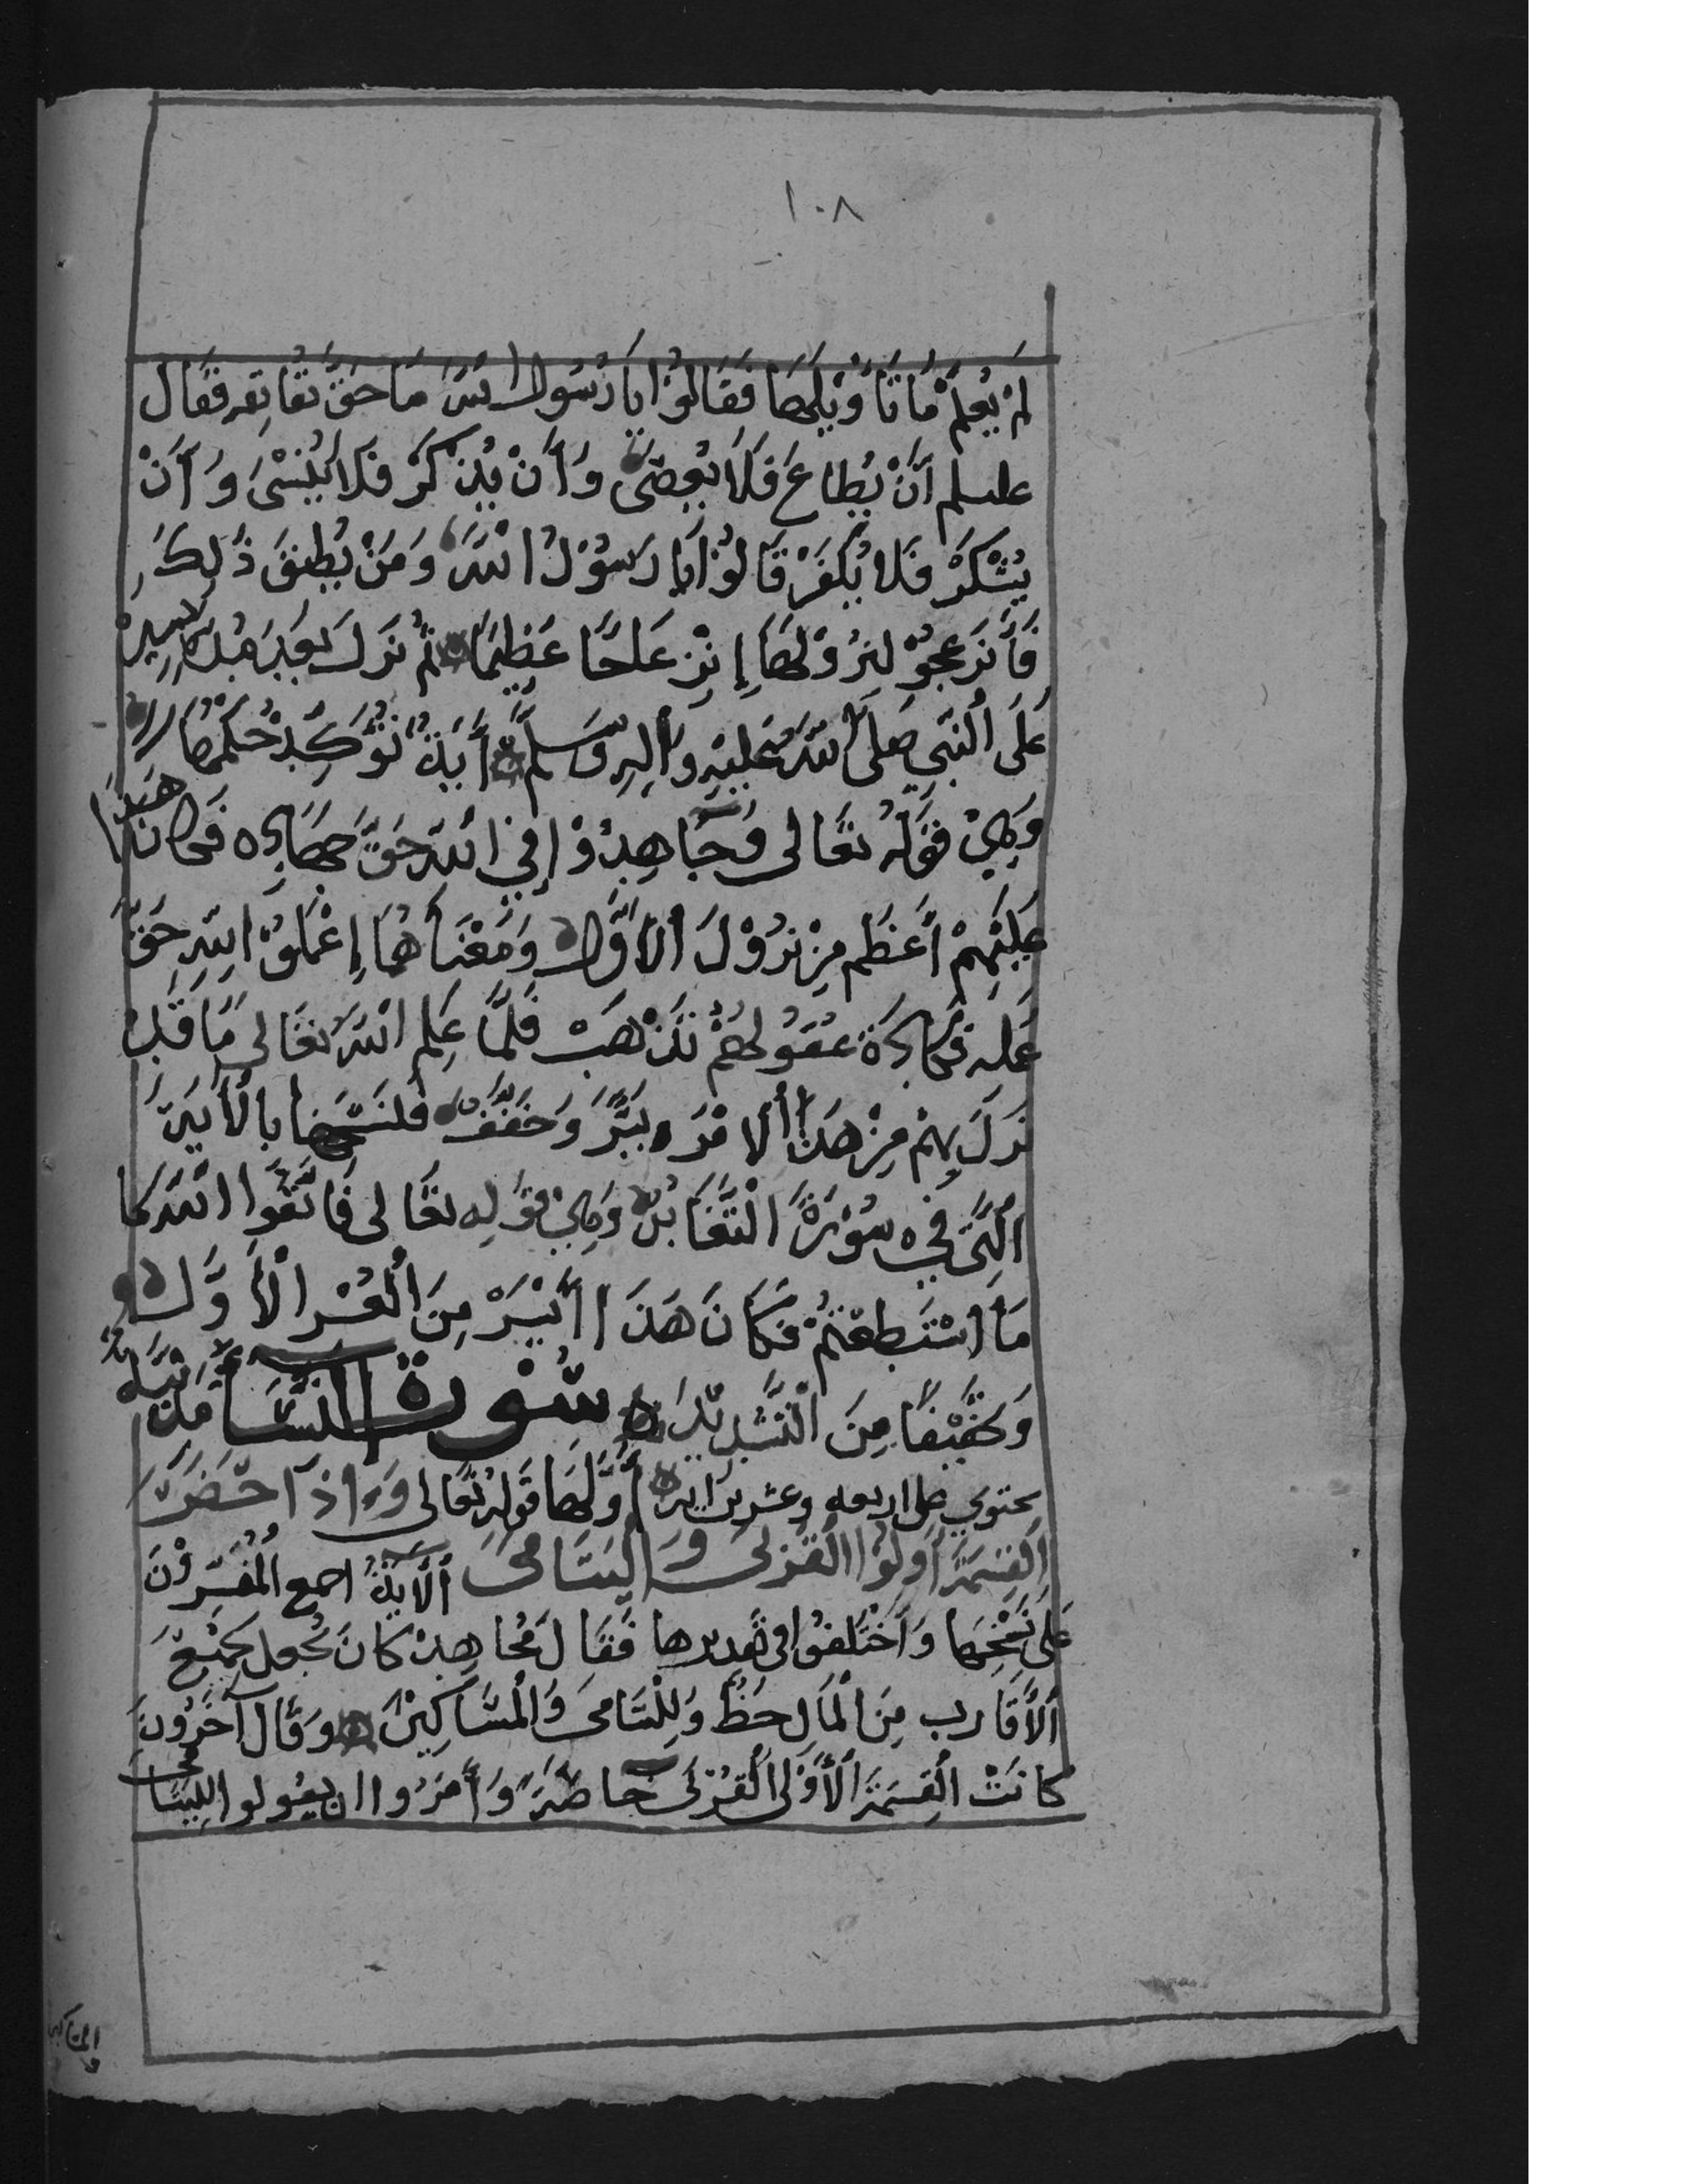 ١٠٨
لم يُعلم ما تأويلها فقالوا يا رسول الله ما حق تقاته فقال
عليلم أن يطاع فلا يعصى وأن يذكر فلا ينسى وأن
يشكر فلا يكفر قالوا يا رسول الله ومن يطيق ذلك
فأنزعجو لنزولها إنزعاجا عظيما ثم نزل بعد هذا بيسير
على النبي صلى الله عليه وأله وسلم أية تؤكد حكمها
وهي قوله تعالى وجاهدوا في الله حق جهاده فكان هذا
عليهم أعظم من نزول الأول ومعناهما إعملو الله حق
عمله فكادة عقولهم تذهب فلما علم الله تعالى ما قد
نزل بهم من هذا الامر يسر وخفف فنسخها بالأية
التي في سورة التغابن وهي قوله تعالى فاتقوا الله كما
ما استطعتم فكان هذا أيسر من العسر الأول
وتخفيفا من التشديد سورة النسآ مدنيه
يحتوي على اربعه وعشرين ايه أولها قوله تعالى وإذآ حضر
القسمة أولوا القربى واليتامى الأية اجمع المفسرون
على نسخها وأختلفوا في تقديرها فقال مجاهد كان يجعل لجميع
الأقارب من المال حظ ولليتامى والمساكين وقال آخرون
كانت القسمة الأولى القربى خاصة وأمروا ان يقولوا لليتامى
والمساكين